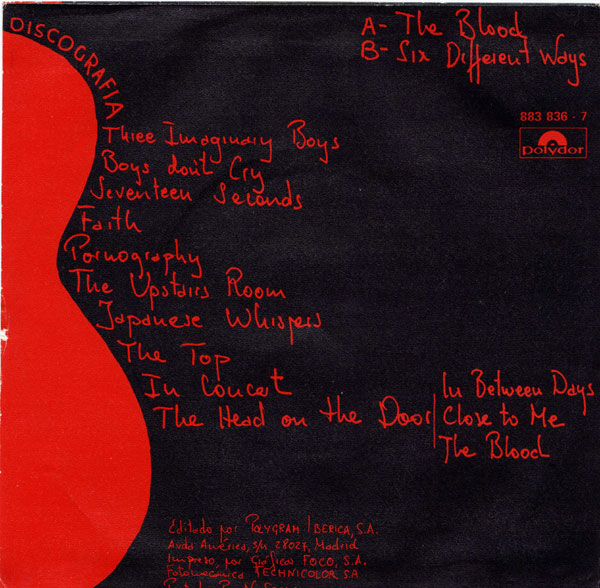 DISCOGRAFIA
A- The Blood
B- Six Different Ways
883 836 - 7
polydor
Three Imaginary Boys
Boys don't Cry
Seventeen Seconds
Faith
Pornography
The Upstairs Room
Japanese Whispers
The Top
In Concert
The Head on the Door
In Between Days
Close to Me
The Blood
Editado por POLYGRAM IBERICA, S.A.
Avda América, s/n 28027, Madrid
Impreso por Gráficas FOCO, S.A.
Fotomecánica TECHNICOLOR SA